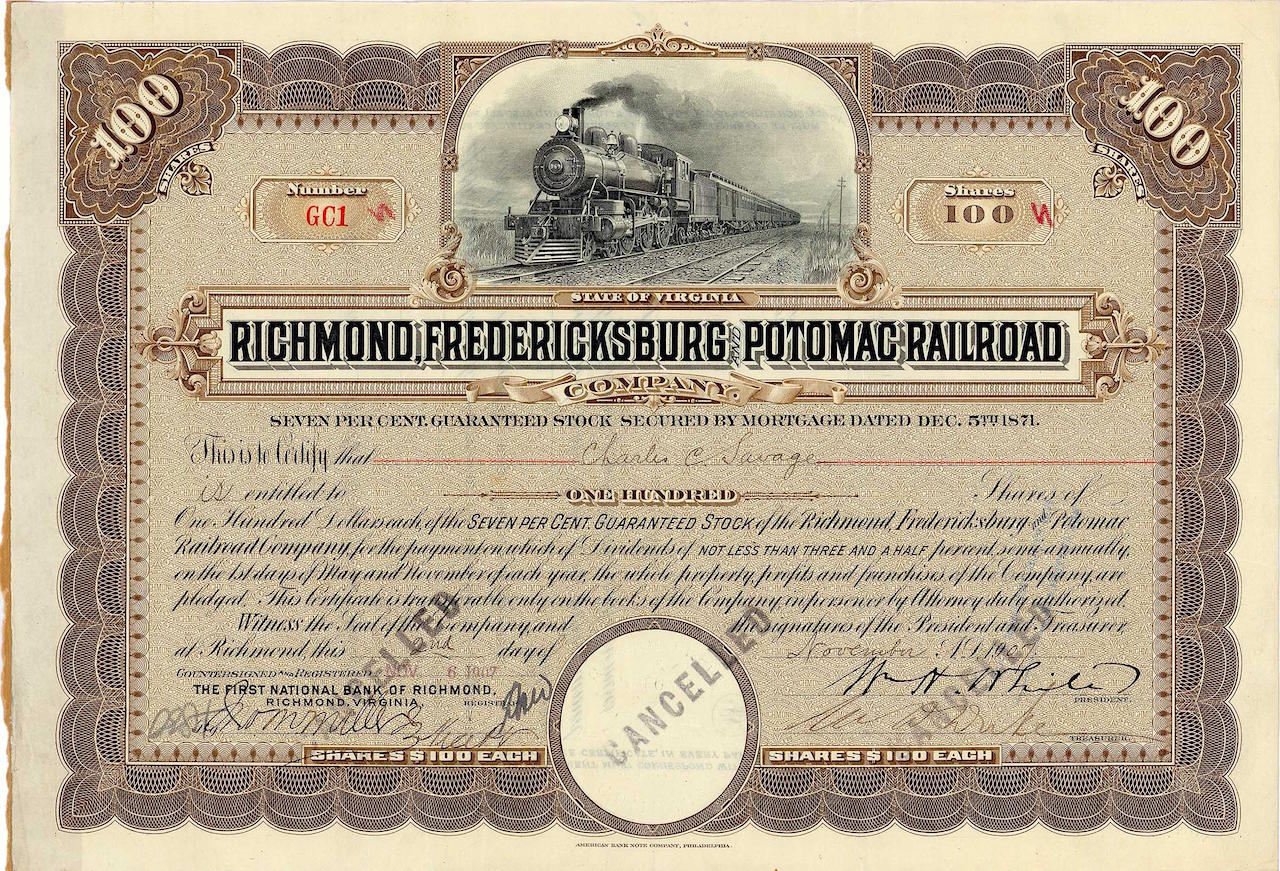 100 SHARES
100 SHARES
Number
GC1
Shares
100
STATE OF VIRGINIA
RICHMOND, FREDERICKSBURG AND POTOMAC RAILROAD
COMPANY.
SEVEN PER CENT. GUARANTEED STOCK SECURED BY MORTGAGE DATED DEC. 5TH 1871.
This is to Certify that Charles C. Savage
is entitled to ONE HUNDRED Shares of
One Hundred Dollars each, of the SEVEN PER CENT. GUARANTEED STOCK of the Richmond, Fredericksburg and Potomac
Railroad Company, for the payment on which of Dividends of NOT LESS THAN THREE AND A HALF per cent, semi-annually,
on the 1st days of May and November of each year, the whole property, profits and franchises of the Company, are
pledged. This Certificate is transferable only on the books of the Company, in person or by Attorney duly authorized.
Witness the Seal of the Company, and the signatures of the President and Treasurer,
at Richmond, this 2nd day of November A.D. 1907.
COUNTERSIGNED AND REGISTERED NOV. 6 1907
THE FIRST NATIONAL BANK OF RICHMOND,
RICHMOND, VIRGINIA, REGISTRAR
W. H. White
PRESIDENT.
TREASURER.
CANCELLED
CANCELLED
CANCELLED
SHARES $100 EACH
SHARES $100 EACH
AMERICAN BANK NOTE COMPANY, PHILADELPHIA.